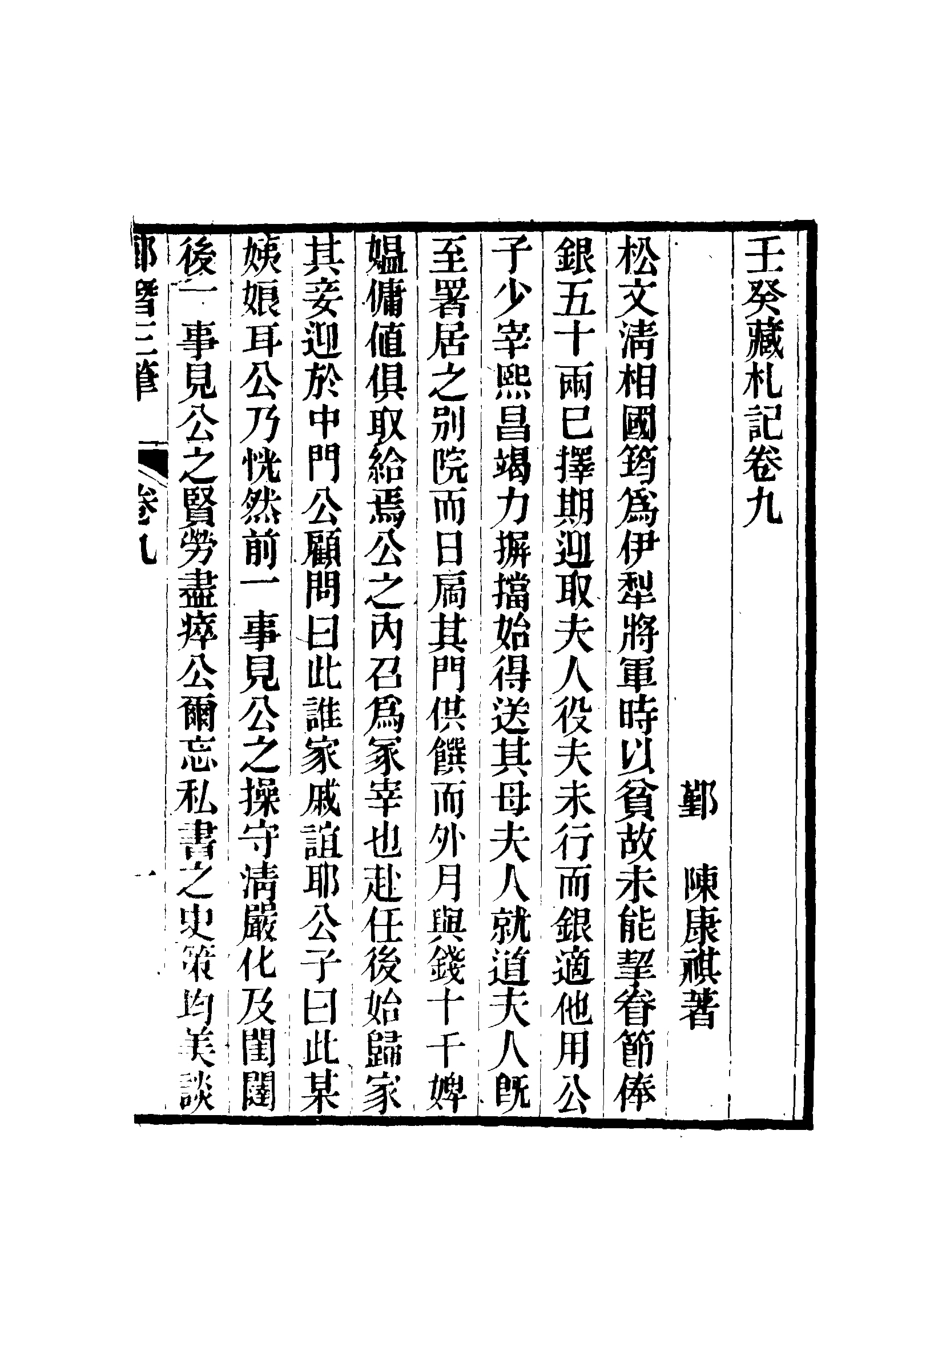 壬癸藏札記卷九
鄞　陳康祺著
松文淸相國筠爲伊犁將軍時以貧故未能挈眷節俸
銀五十兩已擇期迎取夫人役夫未行而銀適他用公
子少宰熙昌竭力摒擋始得送其母夫人就道夫人旣
至署居之别院而日扃其門供饌而外月與錢十千婢
媼傭値俱取給焉公之內召爲冢宰也赴任後始歸家
其妾迎於中門公顧問曰此誰家戚誼耶公子曰此某
姨娘耳公乃恍然前一事見公之操守淸嚴化及閨闥
後一事見公之賢勞盡瘁公爾忘私書之史策均美談
郎潛三筆　卷九　一